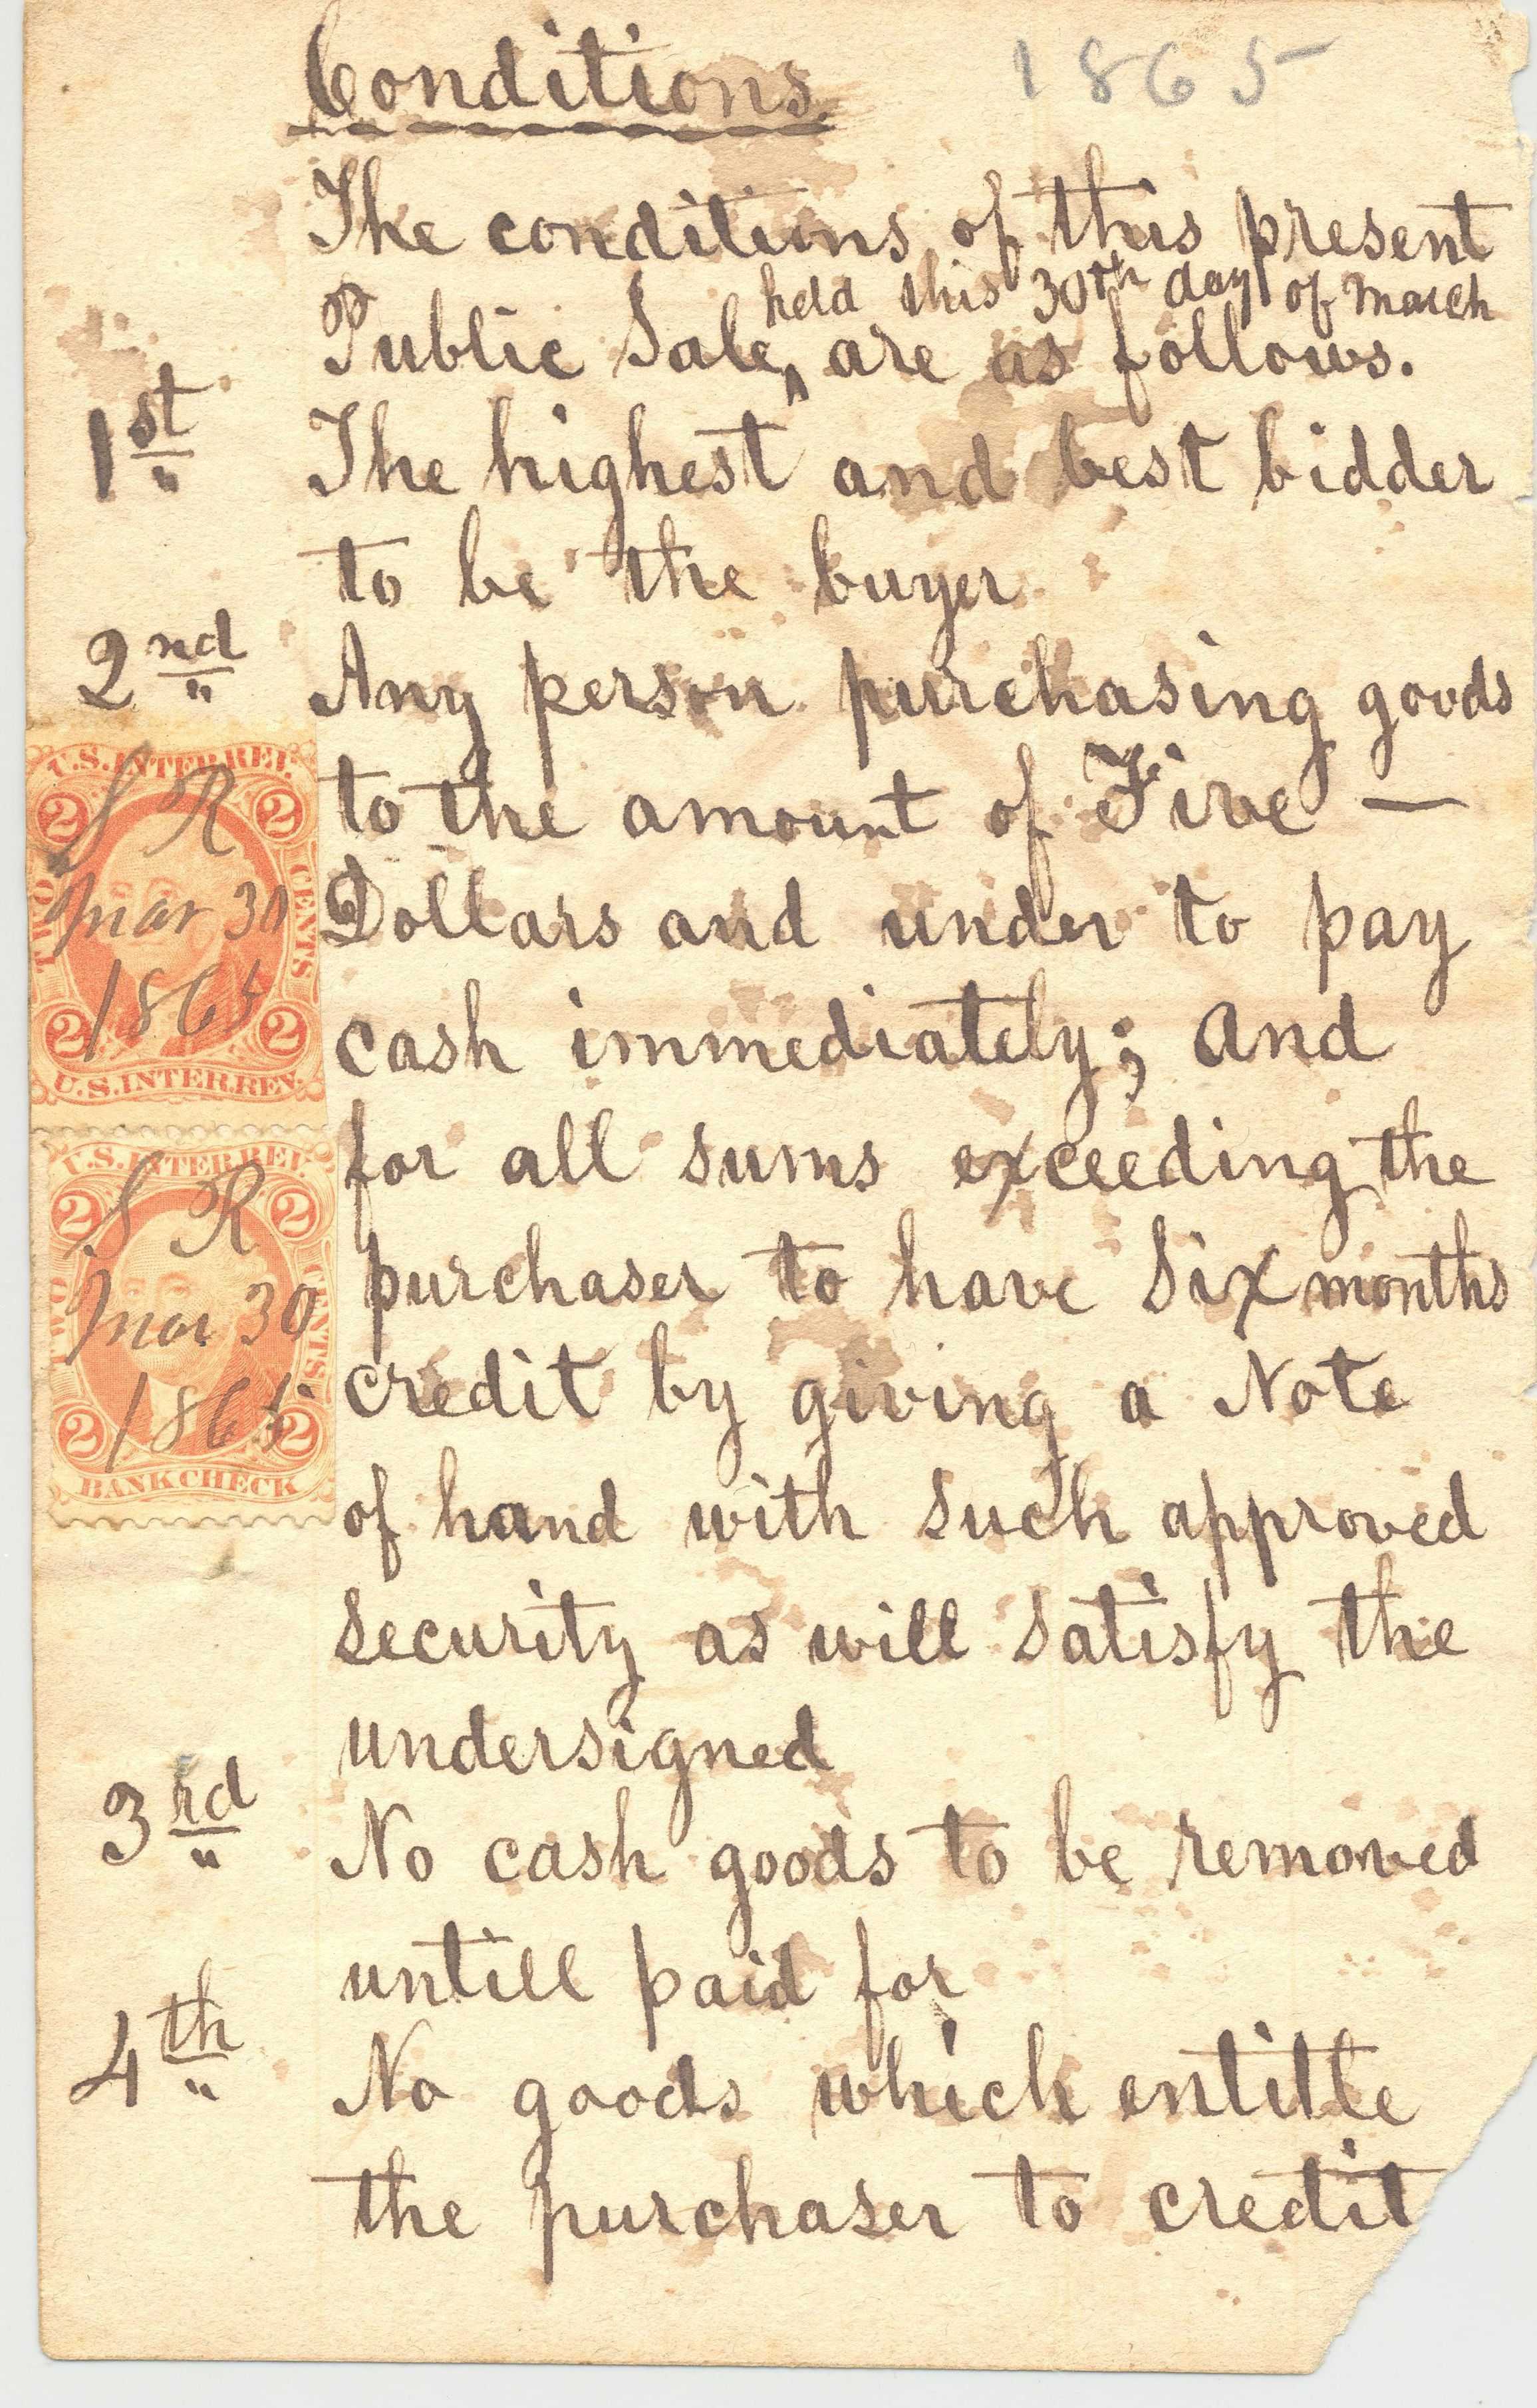 Conditions.
1865
The conditions of this present
held this 30th day of March
Public Sale, are as follows.
1st The highest and best bidder
to be the buyer.
2nd Any person purchasing goods
to the amount of Five —
Dollars and under to pay
cash immediately; and
for all sums exceeding the
purchaser to have Six months
credit by giving a Note
of hand with such approved
security as will satisfy the
undersigned
3rd No cash goods to be removed
untill paid for
4th No goods which entitle
the purchaser to credit
U.S. INTER. REV.
2 2
S R
TWO CENTS
Mar 30
1865
2 2
U.S. INTER. REV.
U.S. INTER. REV.
2 2
S R
TWO CENTS
Mar 30
1865
2 2
BANK CHECK